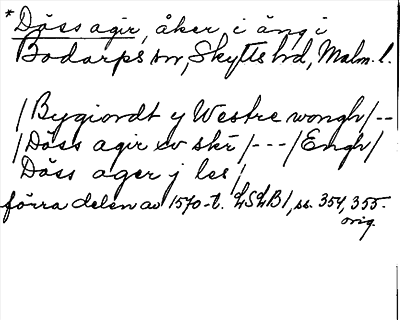 *Döss agir, åker, i äng i
Bodarps sn, Skytts hd, Malm. l.
/Bygiordt y Westre wongh/--
/Döss agir xv skr/---/Engh/
Döss ager j les/
förra delen av 1570-t. LSLB1, ss. 354, 355.
orig.